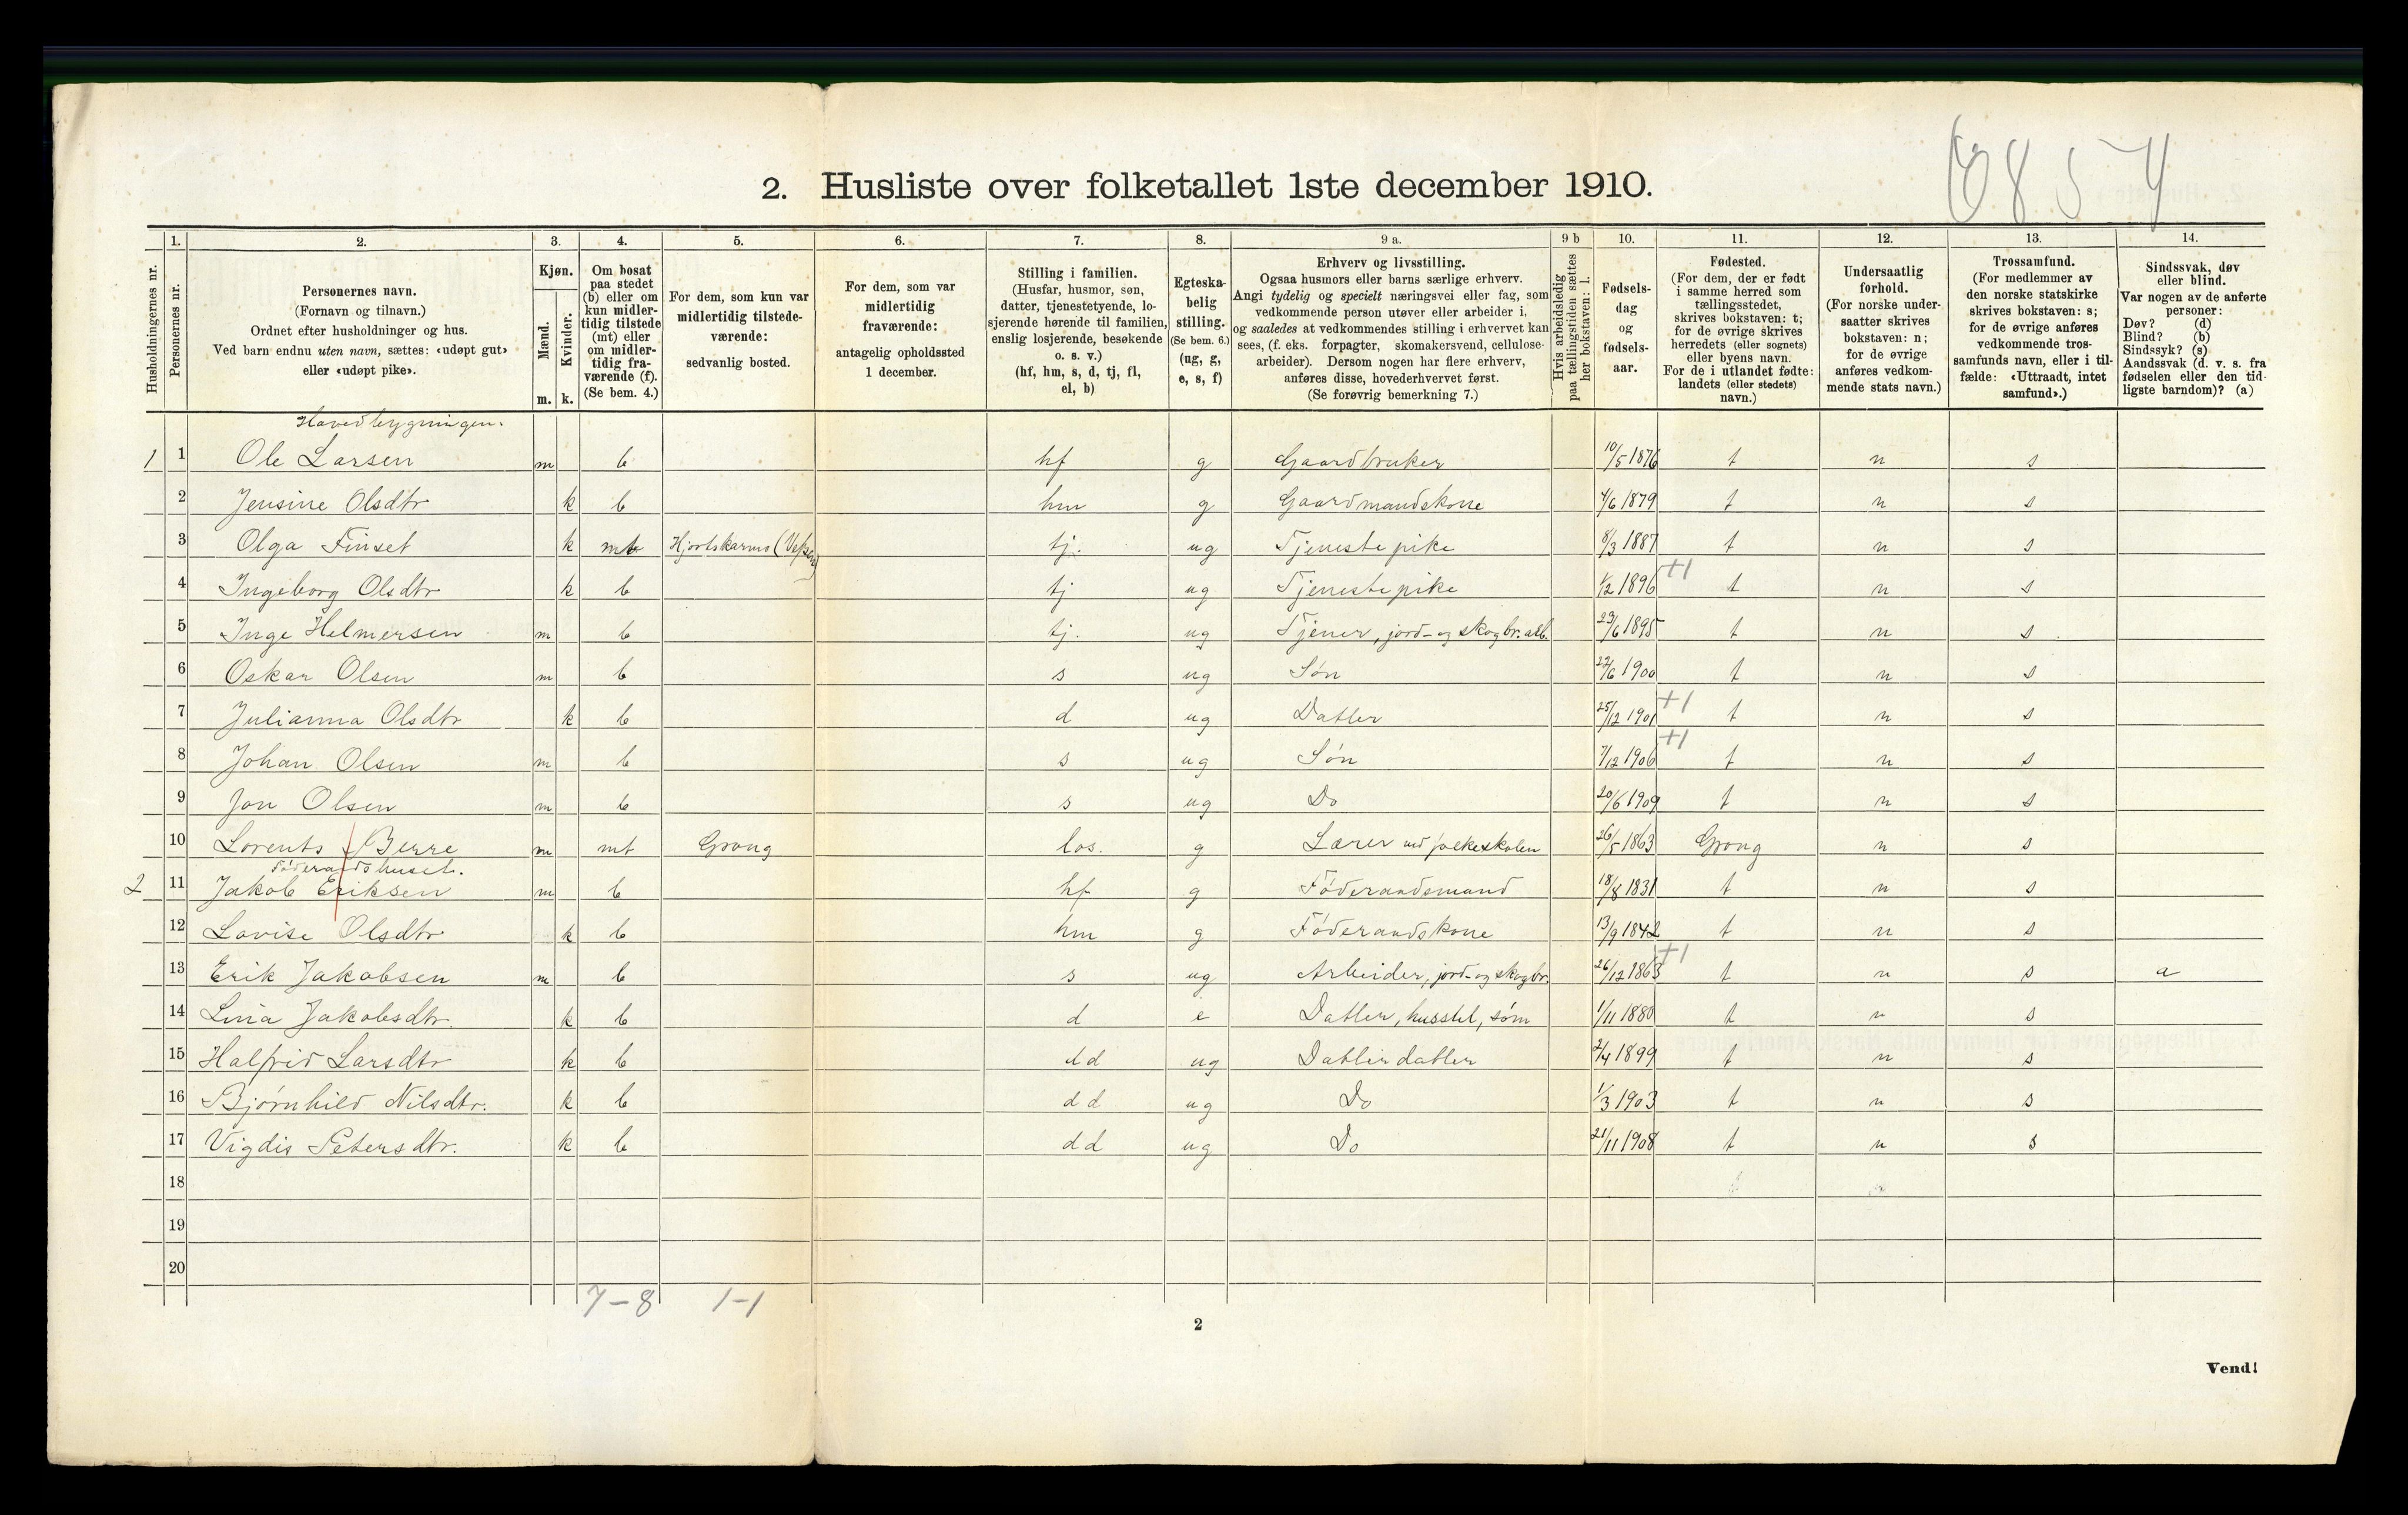 0854
2. Husliste over folketallet 1ste december 1910.
Husholdningernes nr.
1. Personernes nr.
2. Personernes navn.
(Fornavn og tilnavn.)
Ordnet efter husholdninger og hus.
Ved barn endnu uten navn, sættes: «udøpt gut»
eller «udøpt pike».
3. Kjøn.
Mænd. m.
Kvinder. k.
4. Om bosat
paa stedet
(b) eller om
kun midler-
tidig tilstede
(mt) eller
om midler-
tidig fra-
værende (f).
(Se bem. 4.)
5. For dem, som kun var
midlertidig tilstede-
værende:
sedvanlig bosted.
6. For dem, som var
midlertidig
fraværende:
antagelig opholdssted
1 december.
7. Stilling i familien.
(Husfar, husmor, søn,
datter, tjenestetyende, lo-
sjerende hørende til familien,
enslig losjerende, besøkende
o. s. v.)
(hf, hm, s, d, tj, fl,
el, b)
8. Egteska-
belig
stilling.
(Se bem. 6.)
(ug, g,
e, s, f)
9 a. Erhverv og livsstilling.
Ogsaa husmors eller barns særlige erhverv.
Angi tydelig og specielt næringsvei eller fag, som
vedkommende person utøver eller arbeider i,
og saaledes at vedkommendes stilling i erhvervet kan
sees, (f. eks. forpagter, skomakersvend, cellulose-
arbeider). Dersom nogen har flere erhverv,
anføres disse, hovederhvervet først.
(Se forøvrig bemerkning 7.)
9 b Hvis arbeidsledig
paa tællingstiden sættes
her bokstaven: l.
10. Fødsels-
dag
og
fødsels-
aar.
11. Fødested.
(For dem, der er født
i samme herred som
tællingsstedet,
skrives bokstaven: t;
for de øvrige skrives
herredets (eller sognets)
eller byens navn.
For de i utlandet fødte:
landets (eller stedets)
navn.)
12. Undersaatlig
forhold.
(For norske under-
saatter skrives
bokstaven: n;
for de øvrige
anføres vedkom-
mende stats navn.)
13. Trossamfund.
(For medlemmer av
den norske statskirke
skrives bokstaven: s;
for de øvrige anføres
vedkommende tros-
samfunds navn, eller i til-
fælde: «Uttraadt, intet
samfund».)
14. Sindssvak, døv
eller blind.
Var nogen av de anførte
personer:
Døv? (d)
Blind? (b)
Sindssyk? (s)
Aandssvak (d. v. s. fra
fødselen eller den tid-
ligste barndom)? (a)
Hovedbygningen.
1 1 Ole Larsen m b hf g Gaardbruker 10/5 1876 t n s
2 Jensine Olsdtr k b hm g Gaardmandskone 4/6 1879 t n s
3 Olga Finset k mt Hjortskarmo (Vefsen) tj. ug Tjenestepike 8/3 1887 t n s
4 Ingeborg Olsdtr k b tj ug Tjenestepike 1/2 1896 +1 t n s
5 Inge Helmersen m b tj. ug Tjener, jord- og skogbr. arb. 23/6 1895 t n s
6 Oskar Olsen m b s ug Søn 22/6 1900 t n s
7 Julianna Olsdtr k b d ug Datter 25/12 1901 +1 t n s
8 Johan Olsen m b s ug Søn 7/12 1906 +1 t n s
9 Jon Olsen m b s ug Do 20/6 1909 t n s
10 Lorents Berre m mt Grong los. g Lærer ved folkeskolen 26/5 1863 Grong n s
Föderaadshuset.
2 11 Jakob Eriksen m b hf g Föderaadsmand 18/8 1831 t n s
12 Lovise Olsdtr k b hm g Föderaadskone 13/9 1842 t n s
13 Erik Jakobsen m b s ug Arbeider, jord- og skogbr. 26/12 1863 +1 t n s a
14 Lina Jakobsdtr. k b d e Datter, husstel, søm 1/11 1880 t n s
15 Halfrid Larsdtr k b dd ug Datterdatter 2/4 1899 t n s
16 Bjørnhild Nilsdtr. k b dd ug Do 1/3 1903 t n s
17 Vigdis Petersdtr. k b dd ug Do 21/11 1908 t n s
18
19
20
7-8 1-1
2
Vend!